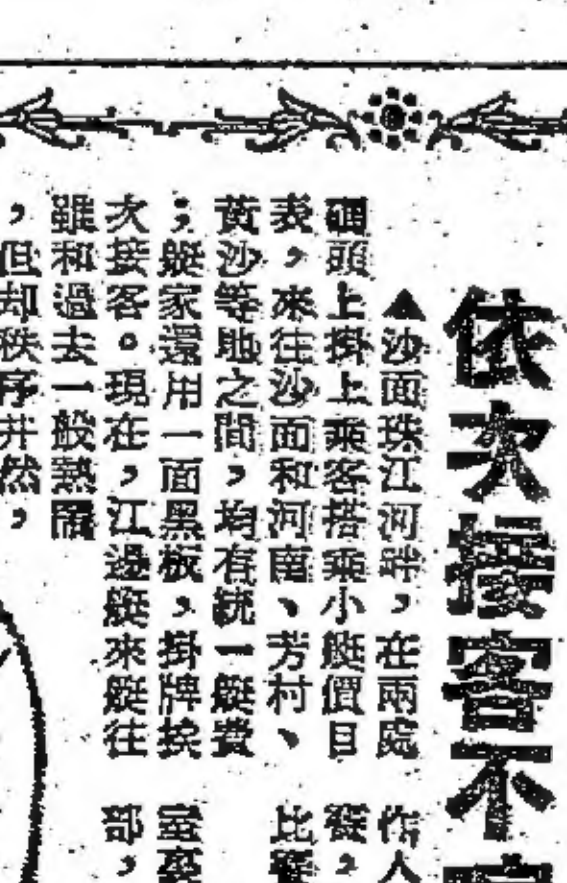 依次接客不
▲沙面珠江河畔，在兩處
碼頭上掛上乘客搭乘小艇價目
表，來往沙面和河南、芳村、
黃沙等地之間，均有統一艇費
；艇家還用一面黑板，掛牌挨
次接客。現在，江邊艇來艇往
雖和過去一般熱鬧
，但却秩序井然，
作人
比
部，